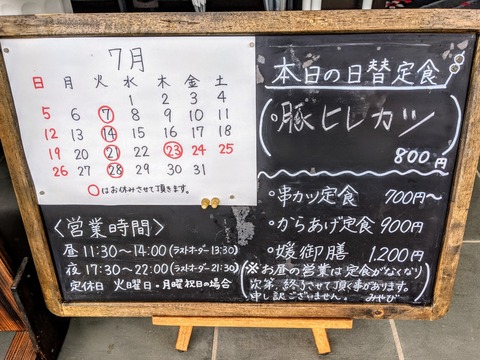 7月
日 月 火 水 木 金 土
1 2 3 4
5 6 7 8 9 10 11
12 13 14 15 16 17 18
19 20 21 22 23 24 25
26 27 28 29 30 31
○はお休みさせて頂きます。
〈営業時間〉
昼 11:30〜14:00(ラストオーダー13:30)
夜 17:30〜22:00(ラストオーダー21:30)
定休日 火曜日・月曜祝日の場合
本日の日替定食
・豚ヒレカツ
800円
・串カツ定食 700円〜
・からあげ定食 900円
・媛御膳 1,200円
(※お昼の営業は定食がなくなり
次第、終了させて頂く事があります。
申し訳ございません。 みやび